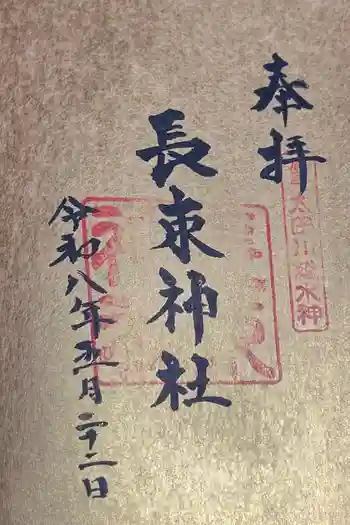 奉拝
長束神社
令和八年五月二十二日